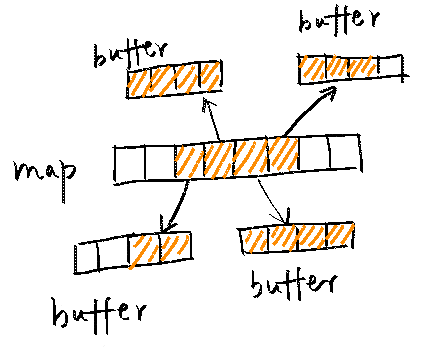 buffer
buffer
map
buffer
buffer